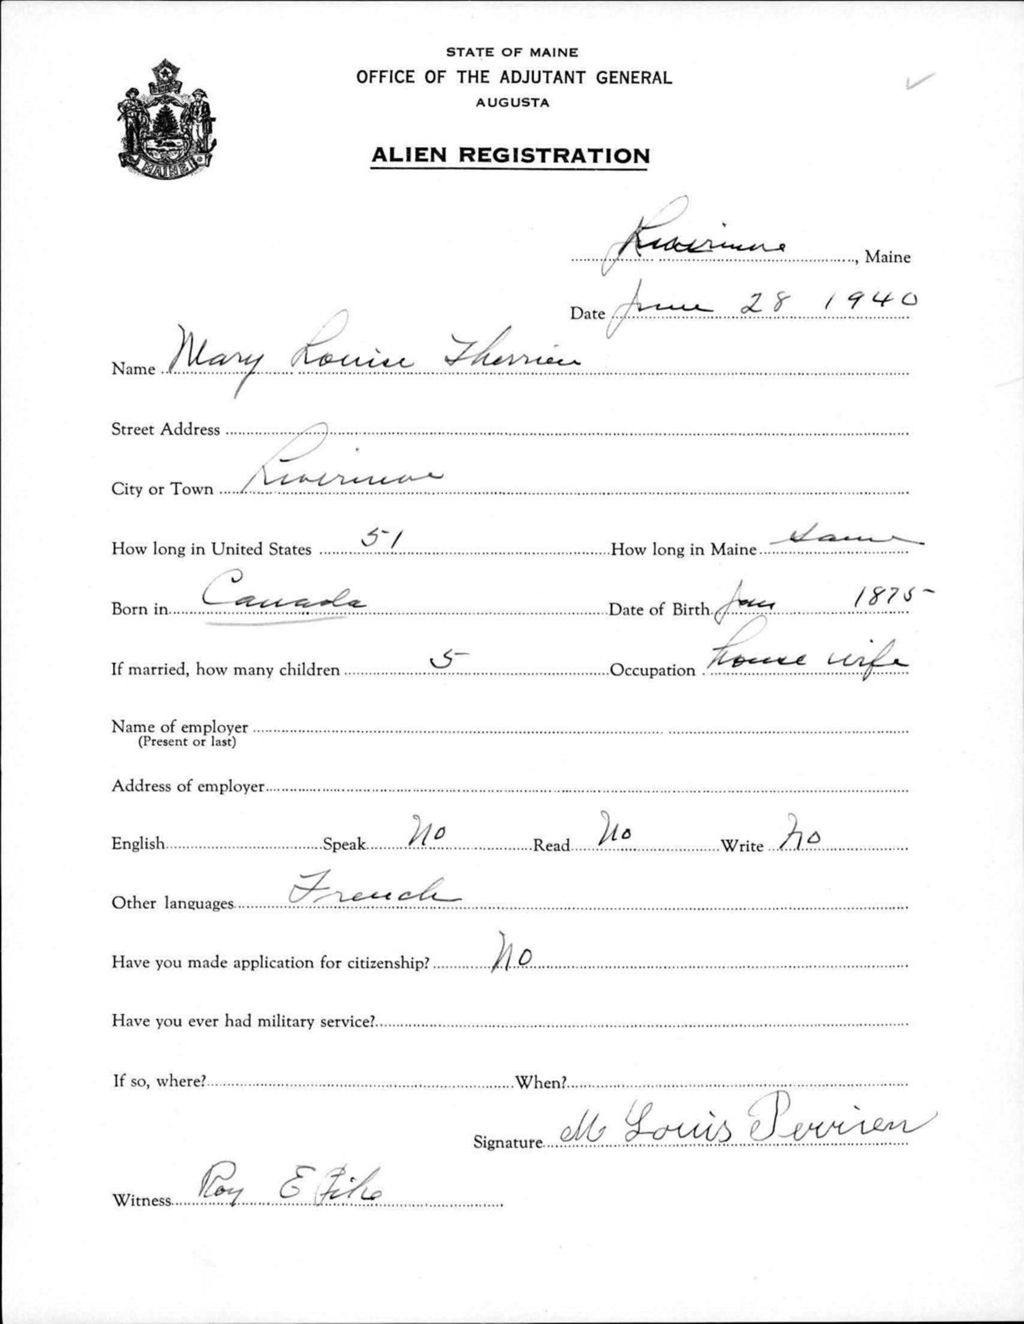 STATE OF MAINE
OFFICE OF THE ADJUTANT GENERAL
AUGUSTA
MAINE
ALIEN REGISTRATION
Livermore, Maine
Date June 28 1940
Name Mary Louise Therrien
Street Address
City or Town Livermore
How long in United States 51 How long in Maine same
Born in Canada Date of Birth Jan 1875
If married, how many children 5 Occupation house wife
Name of employer
(Present or last)
Address of employer
English Speak No Read No Write No
Other languages French
Have you made application for citizenship? No
Have you ever had military service?
If so, where? When?
Signature M Louis Perrien
Witness Roy E Pike